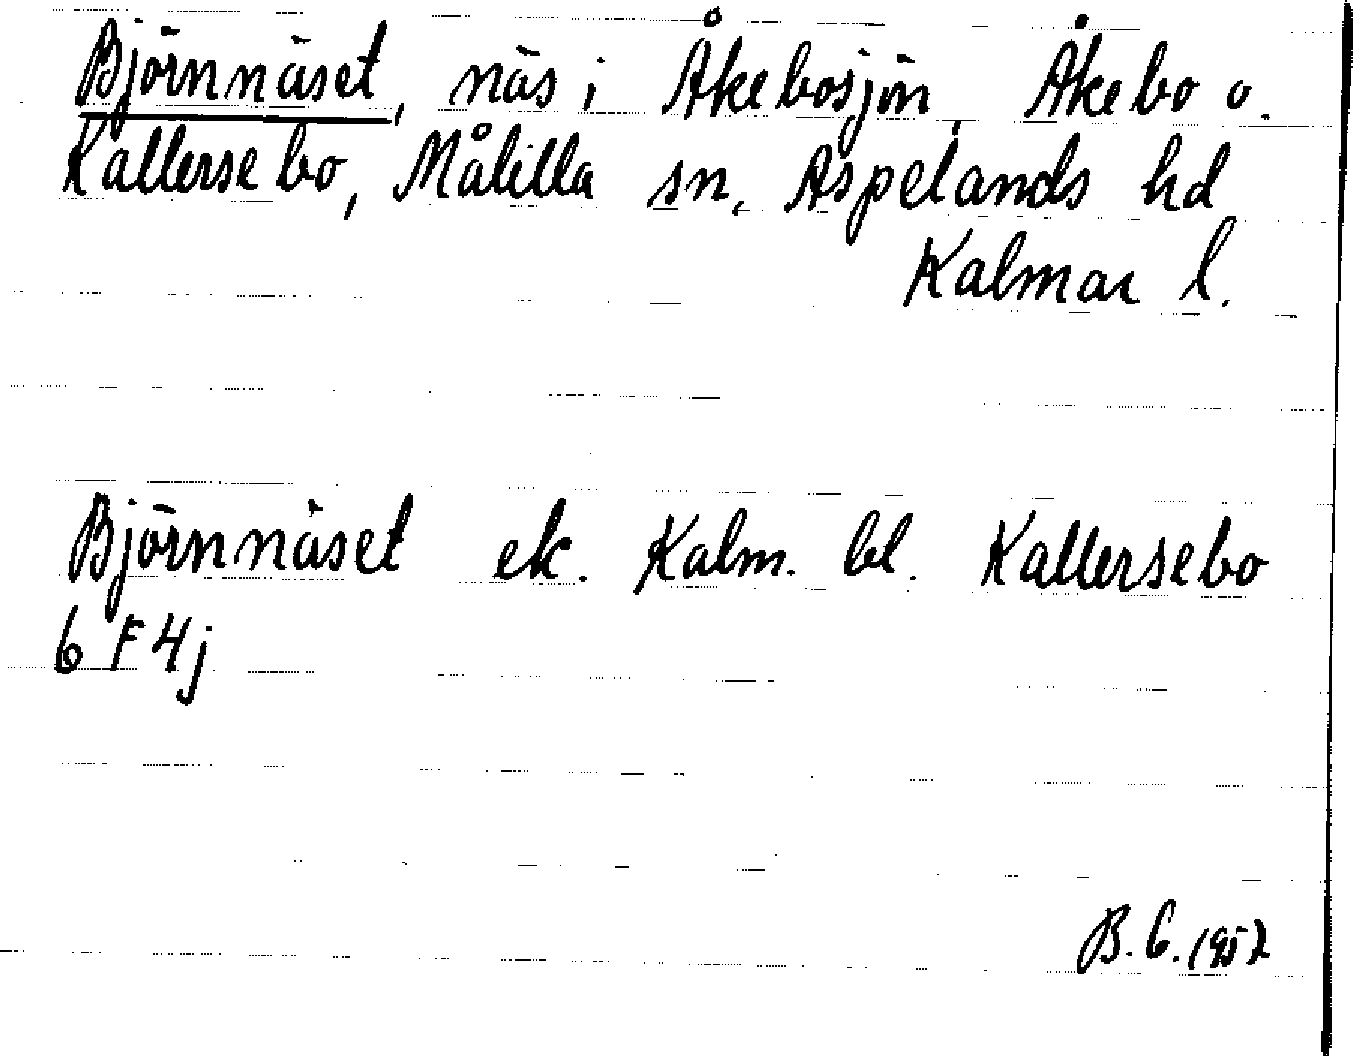 Björnnäset, näs i Åkebosjön, Åkebo o.
Kallersebo, Målilla sn, Aspelands hd
Kalmar l.
Björnnäset ek. Kalm. bl. Kallersebo
6 F 4j
B. G. 1952